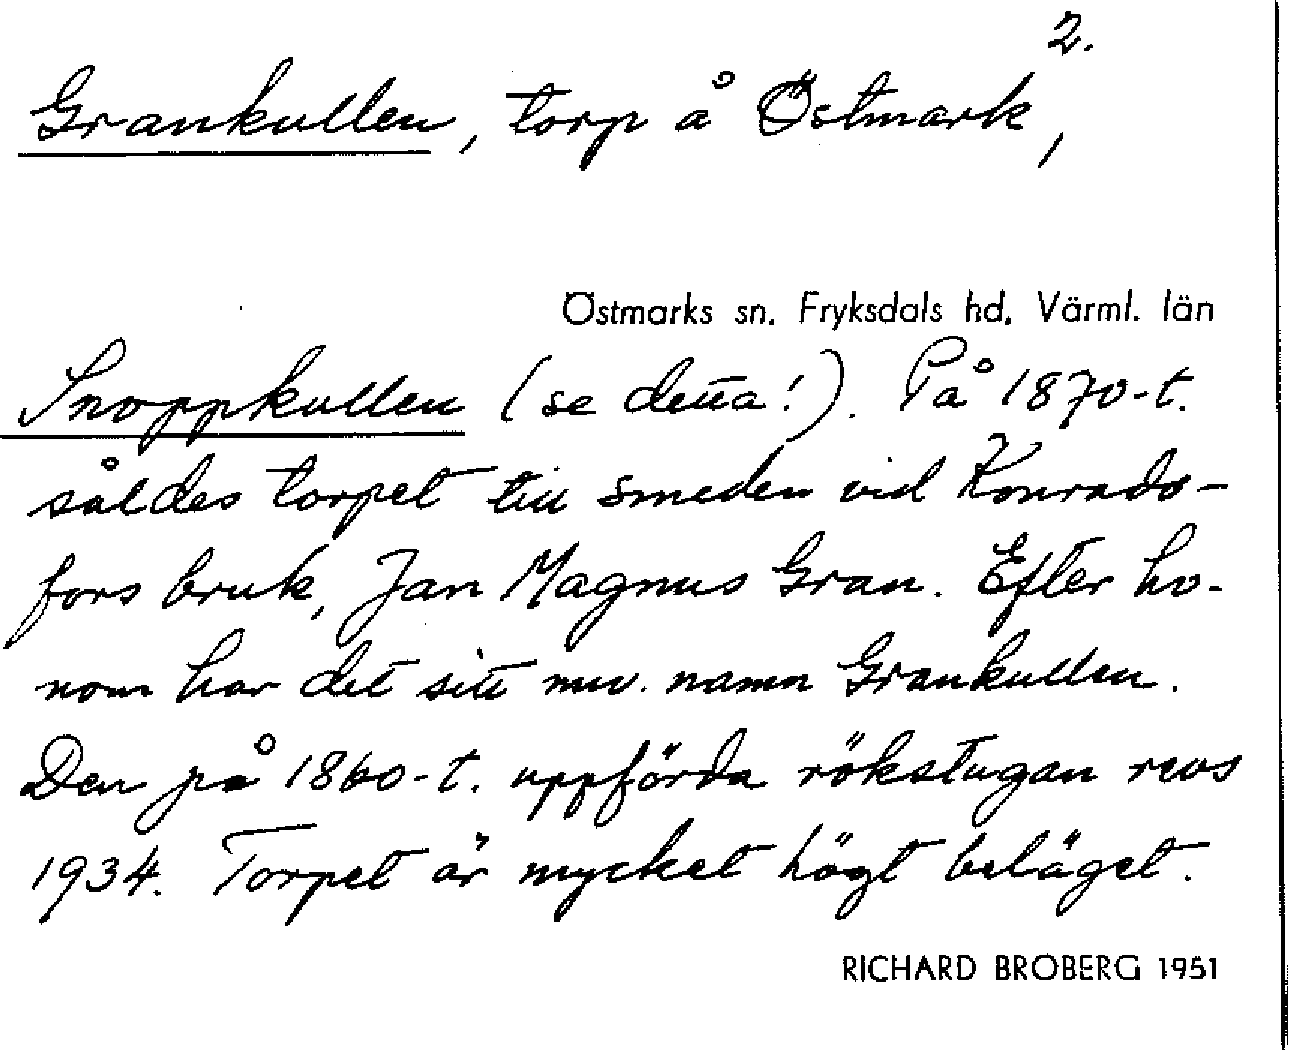 2.
Grankullen, torp å Östmark,
Östmarks sn. Fryksdals hd. Värml. län
Snoppkullen (se detta!). På 1870-t.
såldes torpet till smeden vid Konrads-
fors bruk, Jan Magnus Gran. Efter ho-
nom har det sitt nuv. namn Grankullen.
Den på 1860-t. uppförda rökstugan revs
1934. Torpet är mycket högt beläget.
RICHARD BROBERG 1951